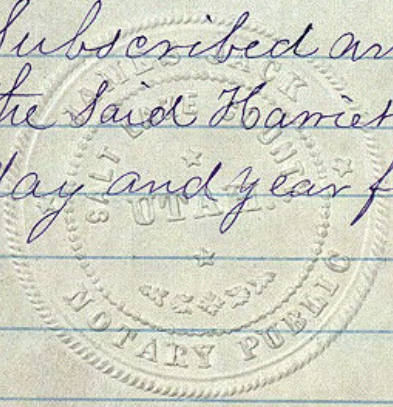 Subscribed an
the Said Harriet
day and year f
JAMES JACK
SALT LAKE COUNTY
UTAH.
NOTARY PUBLIC